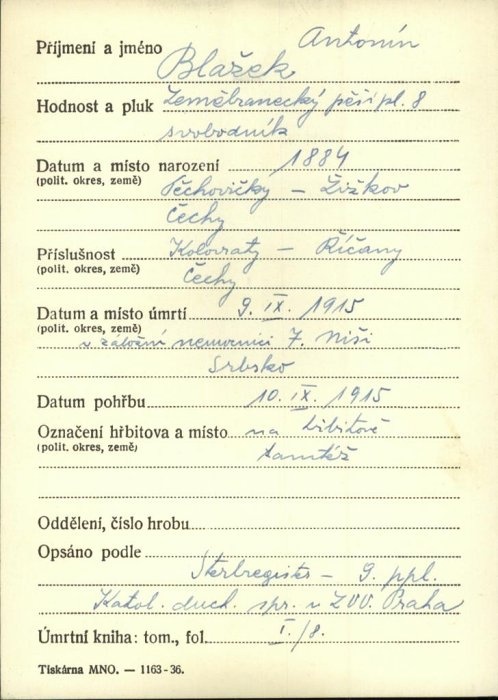 Antonín
Příjmení a jméno Blažek
Hodnost a pluk Zeměbranecký pěší pl. 8
svobodník
Datum a místo narození 1884
(polit. okres, země) Těchovičky – Žižkov
Čechy
Příslušnost Kolovraty – Říčany
(polit. okres, země) Čechy
Datum a místo úmrtí 9. IX. 1915
(polit. okres, země) v záložní nemocnici 7. Niši
Srbsko
Datum pohřbu 10. IX. 1915
Označení hřbitova a místo na hřbitově
(polit. okres, země) tamtéž
Oddělení, číslo hrobu
Opsáno podle
Sterbregister – 9. ppl.
Katol. duch. spr. v ZVV. Praha
Úmrtní kniha: tom., fol. I./8.
Tiskárna MNO. — 1163-36.